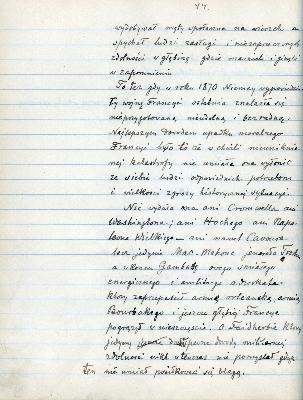 44.
wydobywał męty społeczne na wierzch a
spychał ludzi zasługi i niezaprzeczonych
zdolności w głębiny gdzie marnieli i ginęli
w zapomnieniu.
To też gdy w roku 1870 Niemcy wypowiedzieli
tę wojnę Francya ostatnia znalazła się
nieprzygotowaną nieudolną i bezradną.
Najlepszym dowodem upadku moralnego
Francyi było to że w chwili nieuniknio-
nej katastrofy nie umiała ona wyłonić
ze siebie ludzi odpowiednich potrzebom
i wielkości zgrozy historycznej sytuacyi.
Nie wydała ona ani Cromwella ani
Washingtona; ani Hochego ani Napo-
leona Wielkiego – ani nawet Cavoura
lecz jedynie Mac-Mahona jenerała
a wkońcu Gambettę owego śmiałego
energicznego i ambitnego adwokata
który zaprzepaścił armię orleańską, armię
Bourbakiego i jeszcze głębiej Francyę
pogrążył w nieszczęście. O Faidherbie który
jedyny dawał dowody militarnej
zdolności nikt wtenczas nie pomyślał gdyż
ten nie umiał posiłkować się blagą.